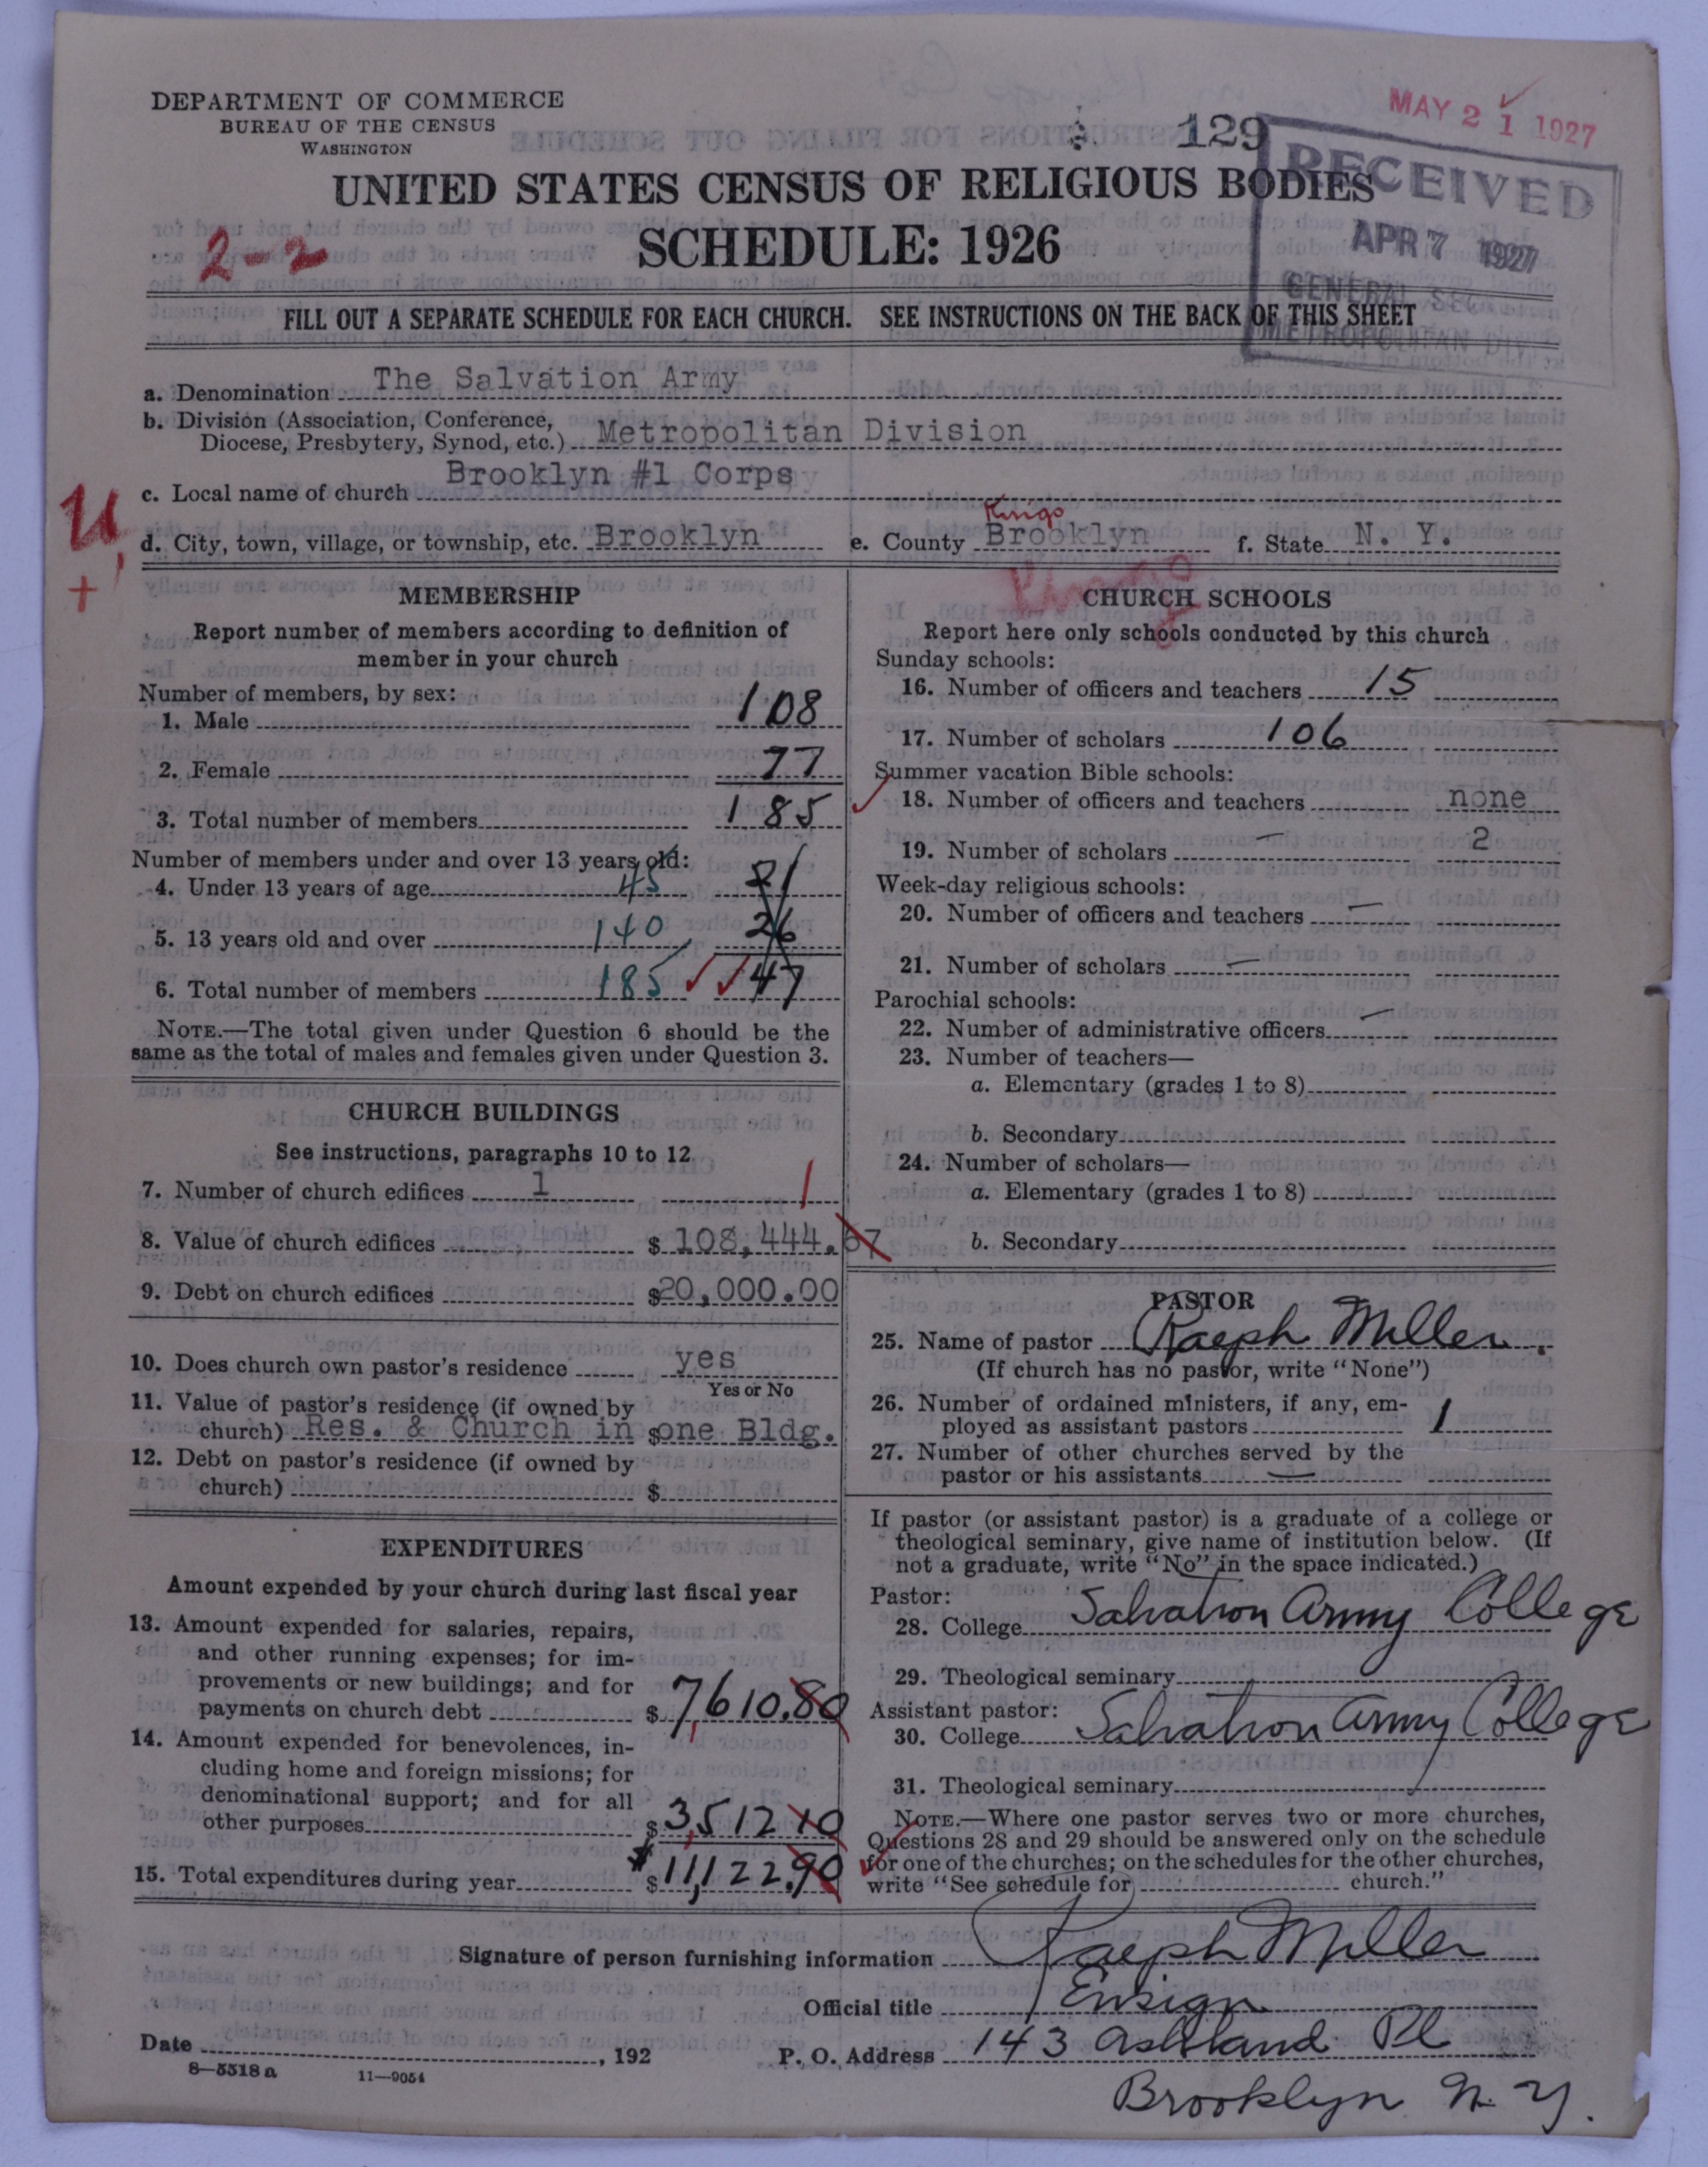 DEPARTMENT OF COMMERCE
BUREAU OF THE CENSUS
WASHINGTON
129
MAY 21 1927
RECEIVED
APR 7 1927
GENERAL SEC
METROPOLITAN DIV
UNITED STATES CENSUS OF RELIGIOUS BODIES
2-2
SCHEDULE: 1926
FILL OUT A SEPARATE SCHEDULE FOR EACH CHURCH. SEE INSTRUCTIONS ON THE BACK OF THIS SHEET
a. Denomination The Salvation Army
b. Division (Association, Conference,
Diocese, Presbytery, Synod, etc.) Metropolitan Division
c. Local name of church Brooklyn #1 Corps
U
+
Kings
d. City, town, village, or township, etc. Brooklyn e. County Brooklyn f. State N. Y.
Kings
MEMBERSHIP
Report number of members according to definition of
member in your church
Number of members, by sex:
1. Male 108
2. Female 77
3. Total number of members 185
Number of members under and over 13 years old:
4. Under 13 years of age 45 21
5. 13 years old and over 140 26
6. Total number of members 185 47
NOTE.—The total given under Question 6 should be the
same as the total of males and females given under Question 3.
CHURCH BUILDINGS
See instructions, paragraphs 10 to 12
7. Number of church edifices 1 1
8. Value of church edifices $ 108,444.67
9. Debt on church edifices $20,000.00
10. Does church own pastor's residence yes
Yes or No
11. Value of pastor's residence (if owned by
church) Res. & Church in $one Bldg.
12. Debt on pastor's residence (if owned by
church) $
EXPENDITURES
Amount expended by your church during last fiscal year
13. Amount expended for salaries, repairs,
and other running expenses; for im-
provements or new buildings; and for
payments on church debt $ 7,610.80
14. Amount expended for benevolences, in-
cluding home and foreign missions; for
denominational support; and for all
other purposes $ 3,512 10
15. Total expenditures during year $ 11,122.90
CHURCH SCHOOLS
Report here only schools conducted by this church
Sunday schools:
16. Number of officers and teachers 15
17. Number of scholars 106
Summer vacation Bible schools:
18. Number of officers and teachers none
19. Number of scholars — 2
Week-day religious schools:
20. Number of officers and teachers —
21. Number of scholars —
Parochial schools:
22. Number of administrative officers —
23. Number of teachers—
a. Elementary (grades 1 to 8)
b. Secondary
24. Number of scholars—
a. Elementary (grades 1 to 8)
b. Secondary
PASTOR
25. Name of pastor Raeph Miller.
(If church has no pastor, write "None")
26. Number of ordained ministers, if any, em-
ployed as assistant pastors 1
27. Number of other churches served by the
pastor or his assistants —
If pastor (or assistant pastor) is a graduate of a college or
theological seminary, give name of institution below. (If
not a graduate, write "No" in the space indicated.)
Pastor:
28. College Salvation Army College
29. Theological seminary
Assistant pastor:
30. College Salvation Army College
31. Theological seminary
NOTE.—Where one pastor serves two or more churches,
Questions 28 and 29 should be answered only on the schedule
for one of the churches; on the schedules for the other churches,
write "See schedule for church."
Signature of person furnishing information Raeph Miller
Official title Ensign
Date , 192 P. O. Address 143 Ashland Pl
Brooklyn N. Y.
8—5518 a 11—9054